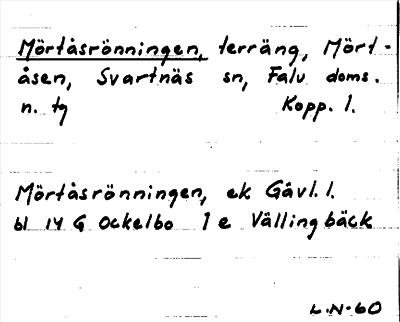 Mörtåsrönningen, terräng, Mört-
åsen, Svartnäs sn, Falu doms.
n. tg Kopp. l.
Mörtåsrönningen, ek Gävl. l.
bl 14 G Ockelbo 1 e Vällingbäck
L.N-60